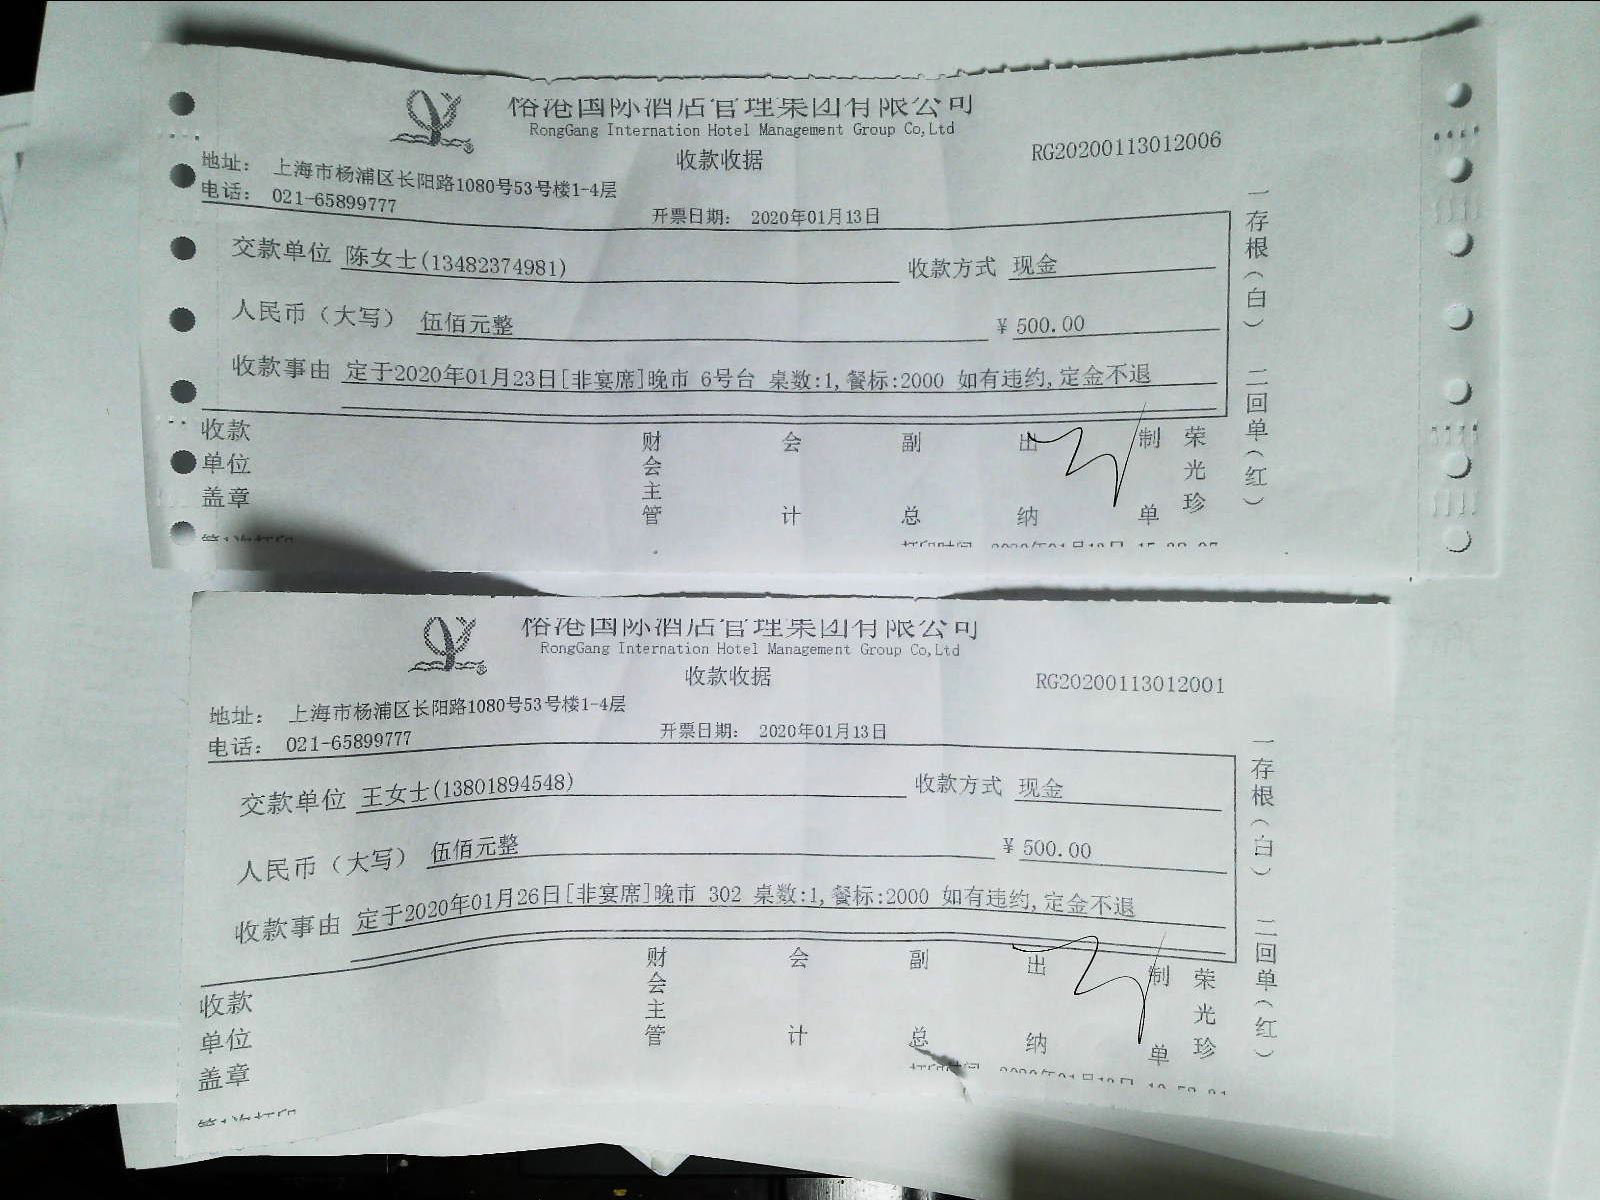 榕港国际酒店管理集团有限公司
RongGang Internation Hotel Management Group Co,Ltd
收款收据
RG20200113012006
地址: 上海市杨浦区长阳路1080号53号楼1-4层
电话: 021-65899777
开票日期: 2020年01月13日
交款单位 陈女士(13482374981) 收款方式 现金
人民币（大写） 伍佰元整 ¥ 500.00
收款事由 定于2020年01月23日[非宴席]晚市 6号台 桌数:1,餐标:2000 如有违约,定金不退
收款单位盖章 财会主管 会计 副总 出纳 制单 荣光珍
一存根(白) 二回单(红)
第1次打印
榕港国际酒店管理集团有限公司
RongGang Internation Hotel Management Group Co,Ltd
收款收据
RG20200113012001
地址: 上海市杨浦区长阳路1080号53号楼1-4层
电话: 021-65899777
开票日期: 2020年01月13日
交款单位 王女士(13801894548) 收款方式 现金
人民币（大写） 伍佰元整 ¥ 500.00
收款事由 定于2020年01月26日[非宴席]晚市 302 桌数:1,餐标:2000 如有违约,定金不退
收款单位盖章 财会主管 会计 副总 出纳 制单 荣光珍
一存根(白) 二回单(红)
第1次打印